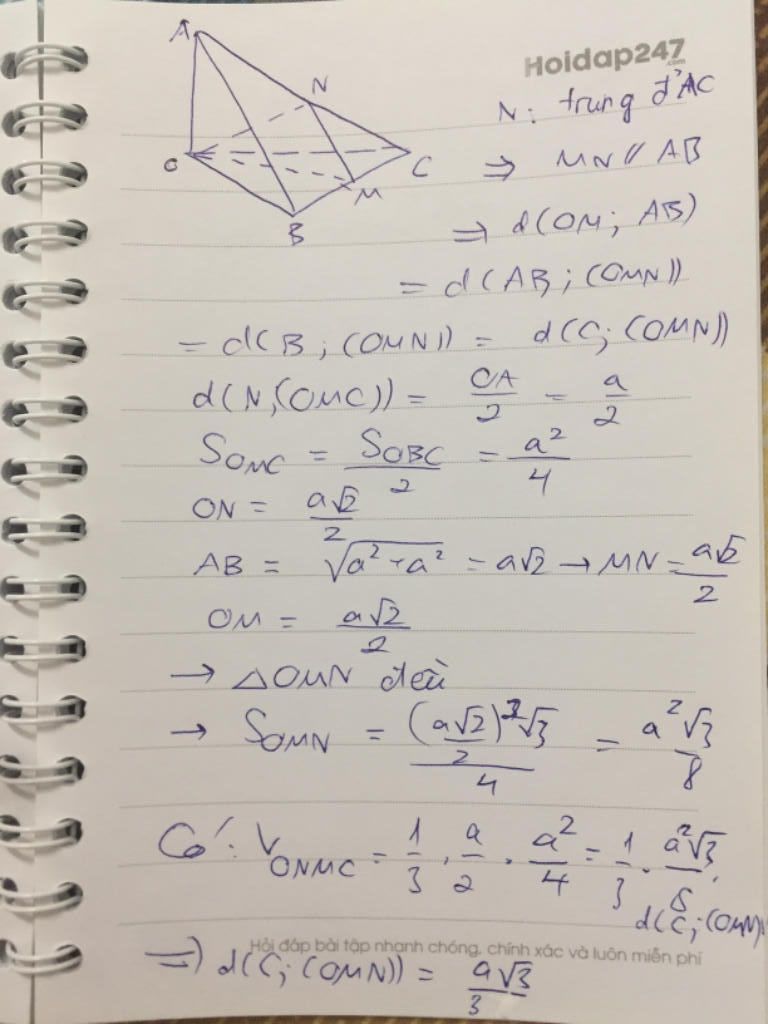 Hoidap247
.com
A
N
O
C
M
B
N: trung đ' AC
⇒ MN // AB
⇒ d(OM; AB)
= d(AB; (OMN))
= d(B; (OMN)) = d(C; (OMN))
d(N,(OMC)) = OA/2 = a/2
S_OMC = S_OBC/2 = a²/4
ON = a√2/2
AB = √(a²+a²) = a√2 → MN = a√2/2
OM = a√2/2
→ ΔOMN đều
→ S_OMN = (a√2/2)²√3/4 = a²√3/8
Có: V_ONMC = 1/3 . a/2 . a²/4 = 1/3 . a²√3/8 . d(C;(OMN))
Hỏi đáp bài tập nhanh chóng, chính xác và luôn miễn phí
⇒ d(C;(OMN)) = a√3/3